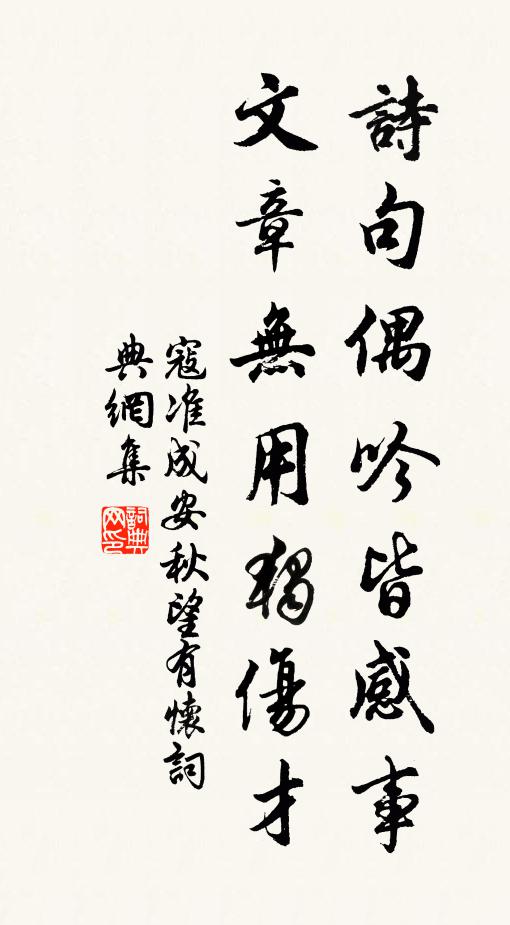 詩句偶吟皆感事
文章無用獨傷才
寇准成安秋望有懷詞
典網集
詞典
网印